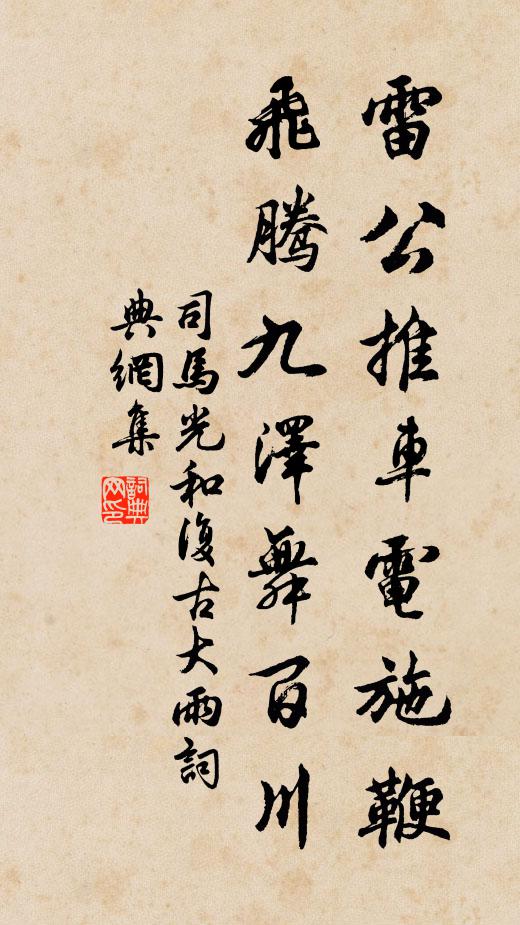 雷公推車電施鞭
飛騰九澤舞百川
司馬光和復古大雨詞
典網集
詞典網印